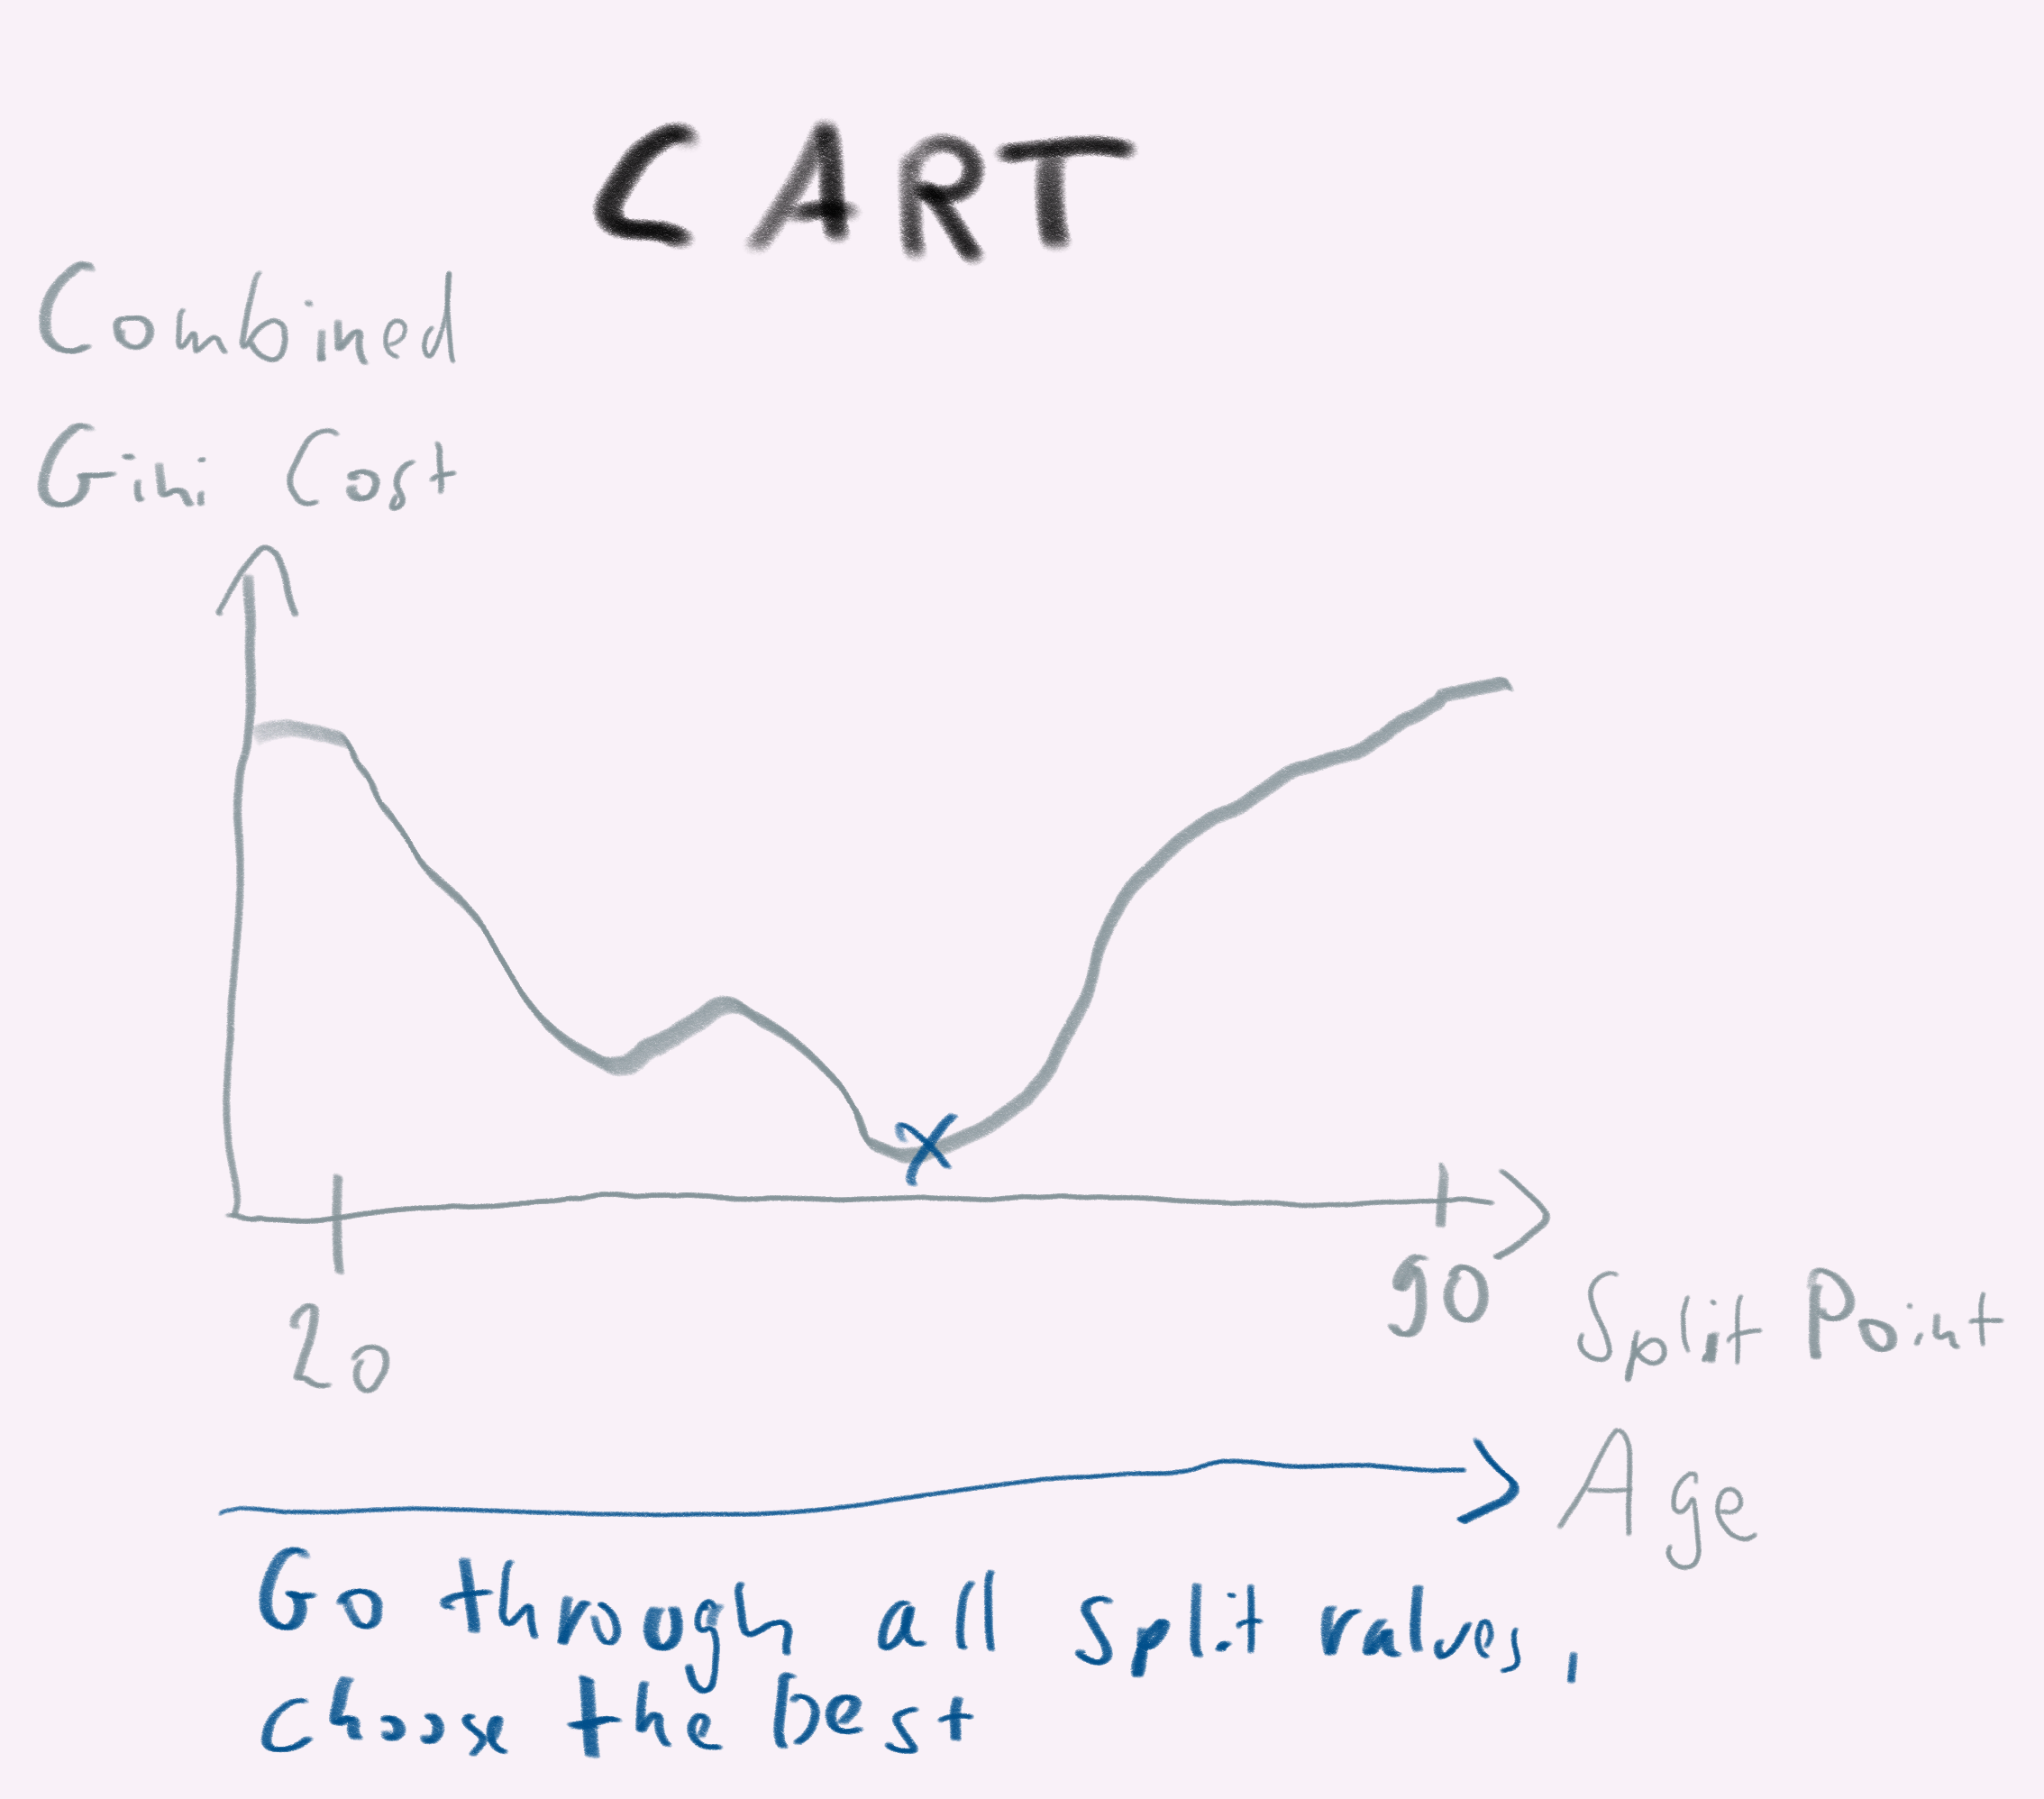 CART
Combined
Gini Cost
20
90
Split Point
Age
Go through all split values,
choose the best